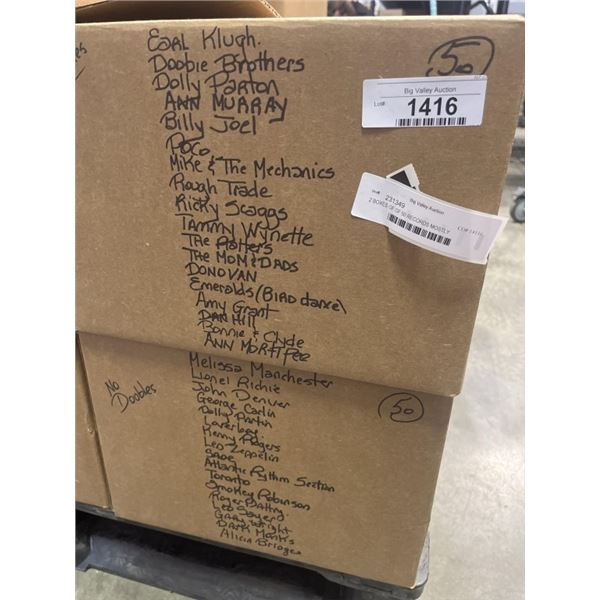 Earl Klugh.
Doobie Brothers
Dolly Parton
ANN MURRAY
Billy Joel
Poco
Mike & The Mechanics
Rough Trade
Ricky Scaggs
Tammy Wynette
The Platters
The MOM & DADS
DONOVAN
Emeralds (BIRD dance)
Amy Grant
DAN Hill
Bonnie & Clyde
ANN MORTIFEE
50
Big Valley Auction
Lot# 1416
231349
Big Valley Auction
2 BOXES OF 50 RECORDS MOSTLY
No Doobles
Melissa Manchester
Lionel Richie
John Denver
George Carlin
Dolly Parton
Loverboy
Kenny Rogers
Led Zeppelin
Sade
Atlantic Rythm Section
Toronto
Smokey Robinson
Roger Daltry
Leo Sayer
Gary Wright
Alicia Bridges
50